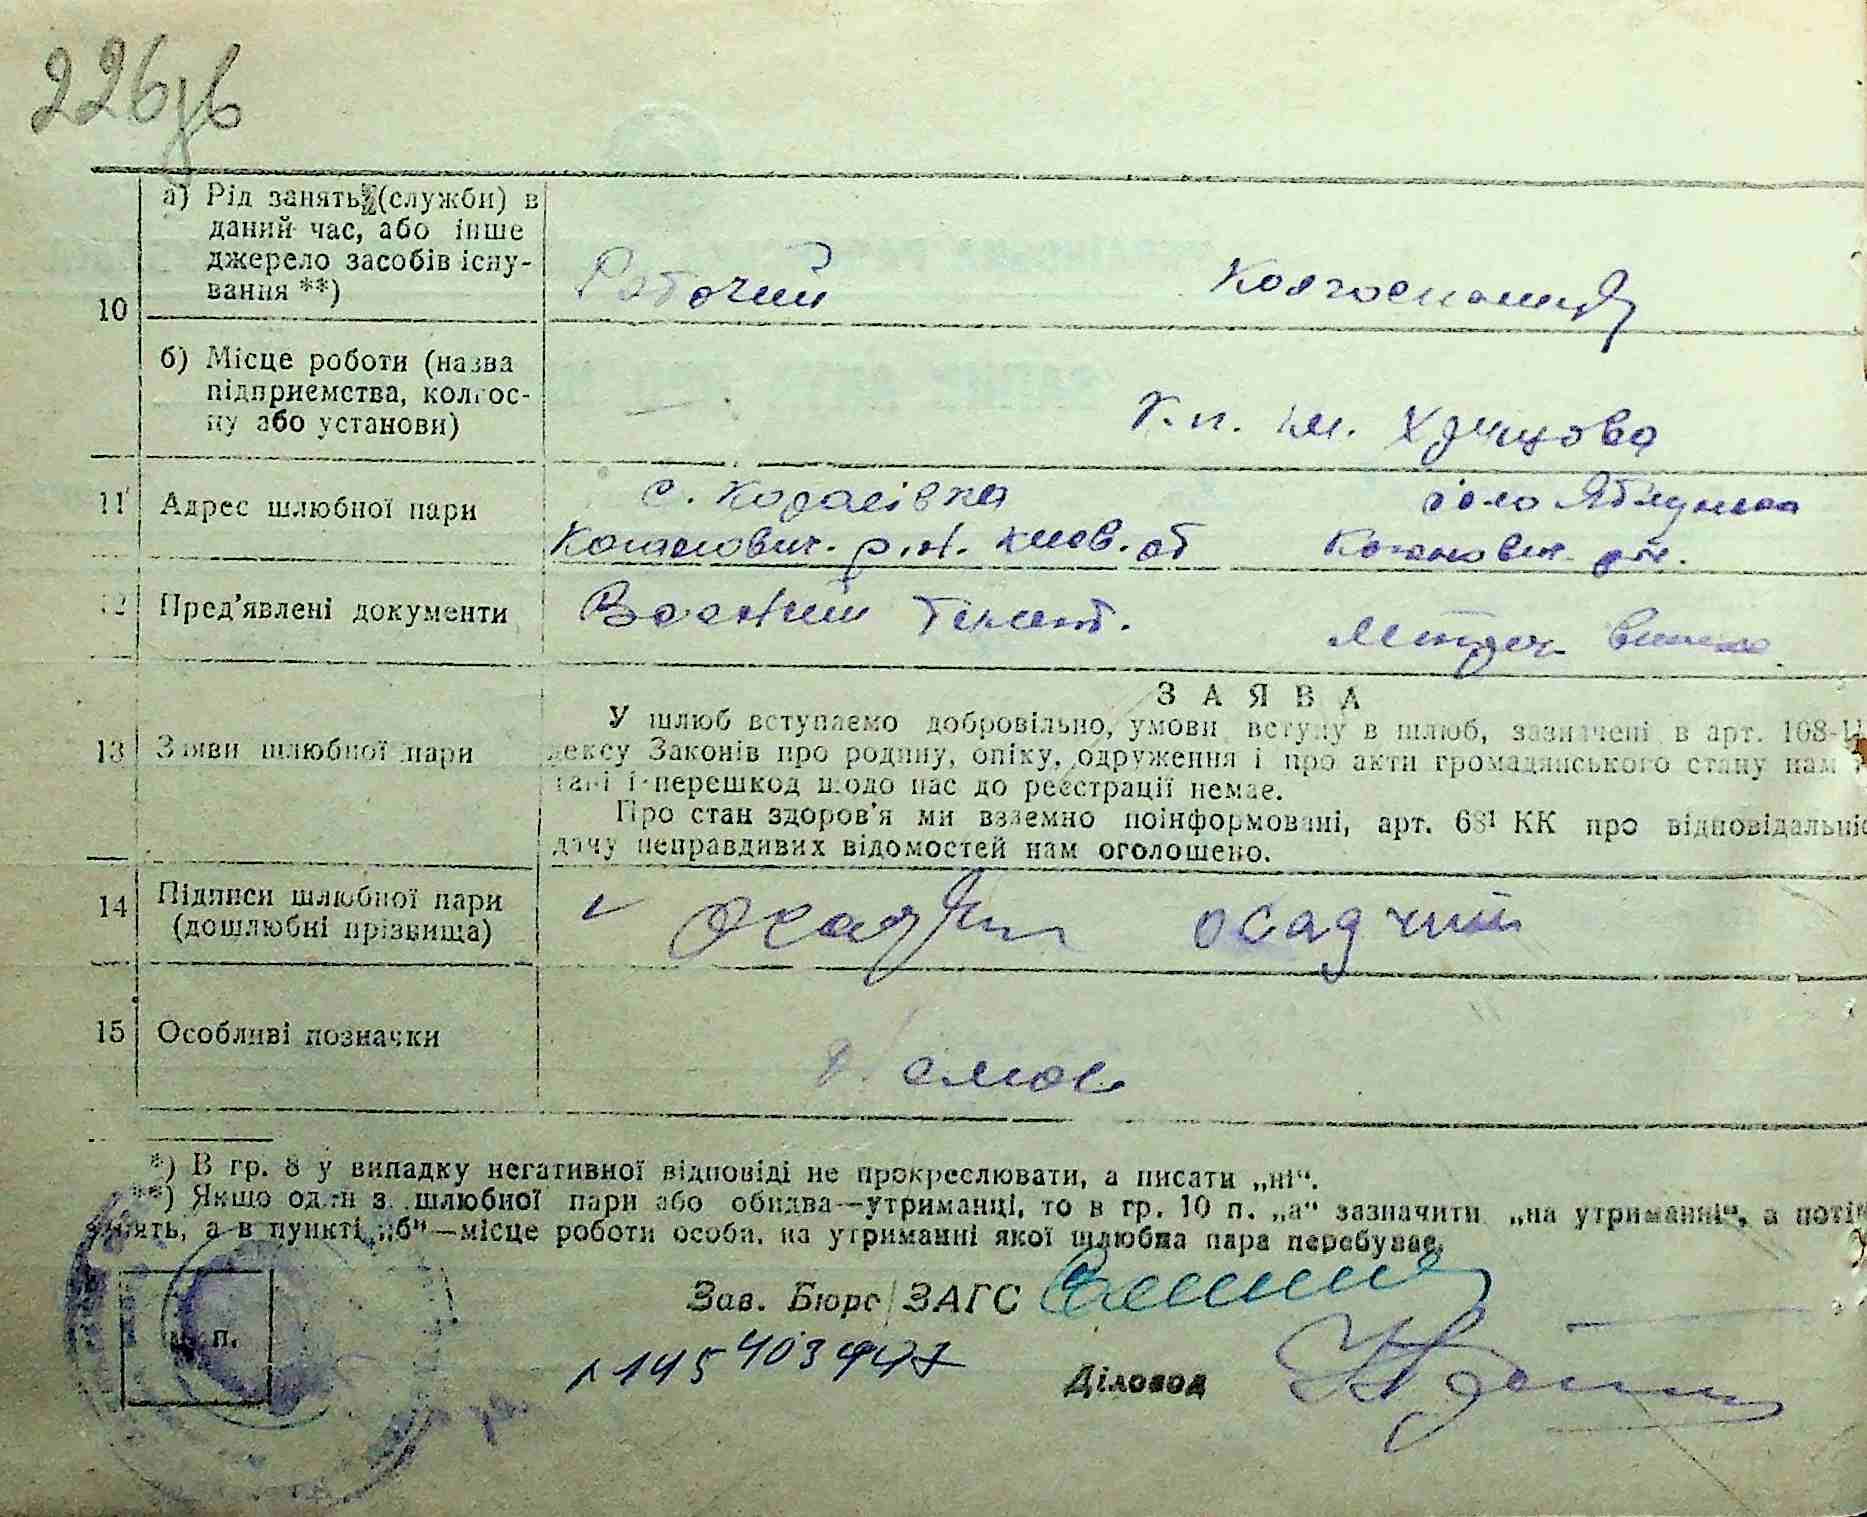 226зв
а) Рід занять (служби) в
даний час, або інше
джерело засобів існу-
вання **)
Рабочий
Колгоспниця
10
б) Місце роботи (назва
підприємства, колгос-
пу або установи)
—
к.п. ім. Хрущова
11
Адрес шлюбної пари
с. Королівка
село Яблунка
Каганович. р.н. Киев. об
Каганович. рн.
12
Пред’явлені документи
Военний билет.
13
Заяви шлюбної пари
ЗАЯВА
У шлюб вступаємо добровільно, умови вступу в шлюб, зазначені в арт. 108-
дексу Законів про родину, опіку, одруження і про акти громадянського стану нам
тані і перешкод щодо нас до реєстрації немає.
Про стан здоров’я ми взаємно поінформовані, арт. 68¹ КК про відповідальніс
дачу неправдивих відомостей нам оголошено.
14
Підписи шлюбної пари
(дошлюбні прізвища)
Осадчий
15
Особливі позначки
*) В гр. 8 у випадку негативної відповіді не прокреслювати, а писати „ні“.
**) Якщо один з шлюбної пари або обидва—утриманці, то в гр. 10 п. „а“ зазначити „на утриманні“, а поті
занять, а в пункті „б“—місце роботи особи, на утриманні якої шлюбна пара перебуває.
Зав. Бюро ЗАГС
м. п.
Діловод